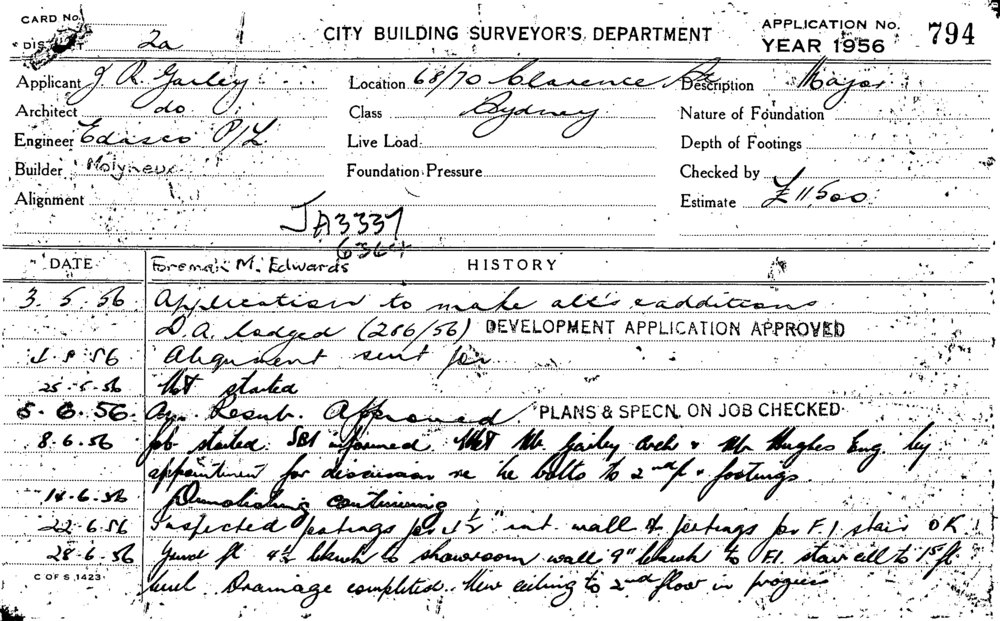 CARD No.
CITY BUILDING SURVEYOR'S DEPARTMENT
APPLICATION No. 794
DISTRICT 2a
YEAR 1956
Applicant J R Gailey Location 68/70 Clarence St Description Major
Architect do Class Sydney Nature of Foundation
Engineer Edasco P/L Live Load Depth of Footings
Builder Molyneux Foundation Pressure Checked by
Alignment Estimate £11,500
JA3337
6364
DATE Foreman M. Edwards HISTORY
3.5.56 Application to make alts & additions
D.A. lodged (286/56) DEVELOPMENT APPLICATION APPROVED
Alignment sent for
25.5.56 Not started
5.6.56 Resub. Approved PLANS & SPECN. ON JOB CHECKED
8.6.56 Job started. SBI informed. Met Mr Gailey Arch & Mr Hughes Eng. by
appointment for discussion re bolts to 2nd fl & footings.
14.6.56 Demolishing continuing
22.6.56 Inspected footings for int. wall & footings for F.I. stair OK
28.6.56 Grnd fl 4½ bkwk to showroom wall 9" bkwk to F.I. stair to 1st fl
level. Drainage completed. New ceiling to 2nd floor in progress
C OF S 1423